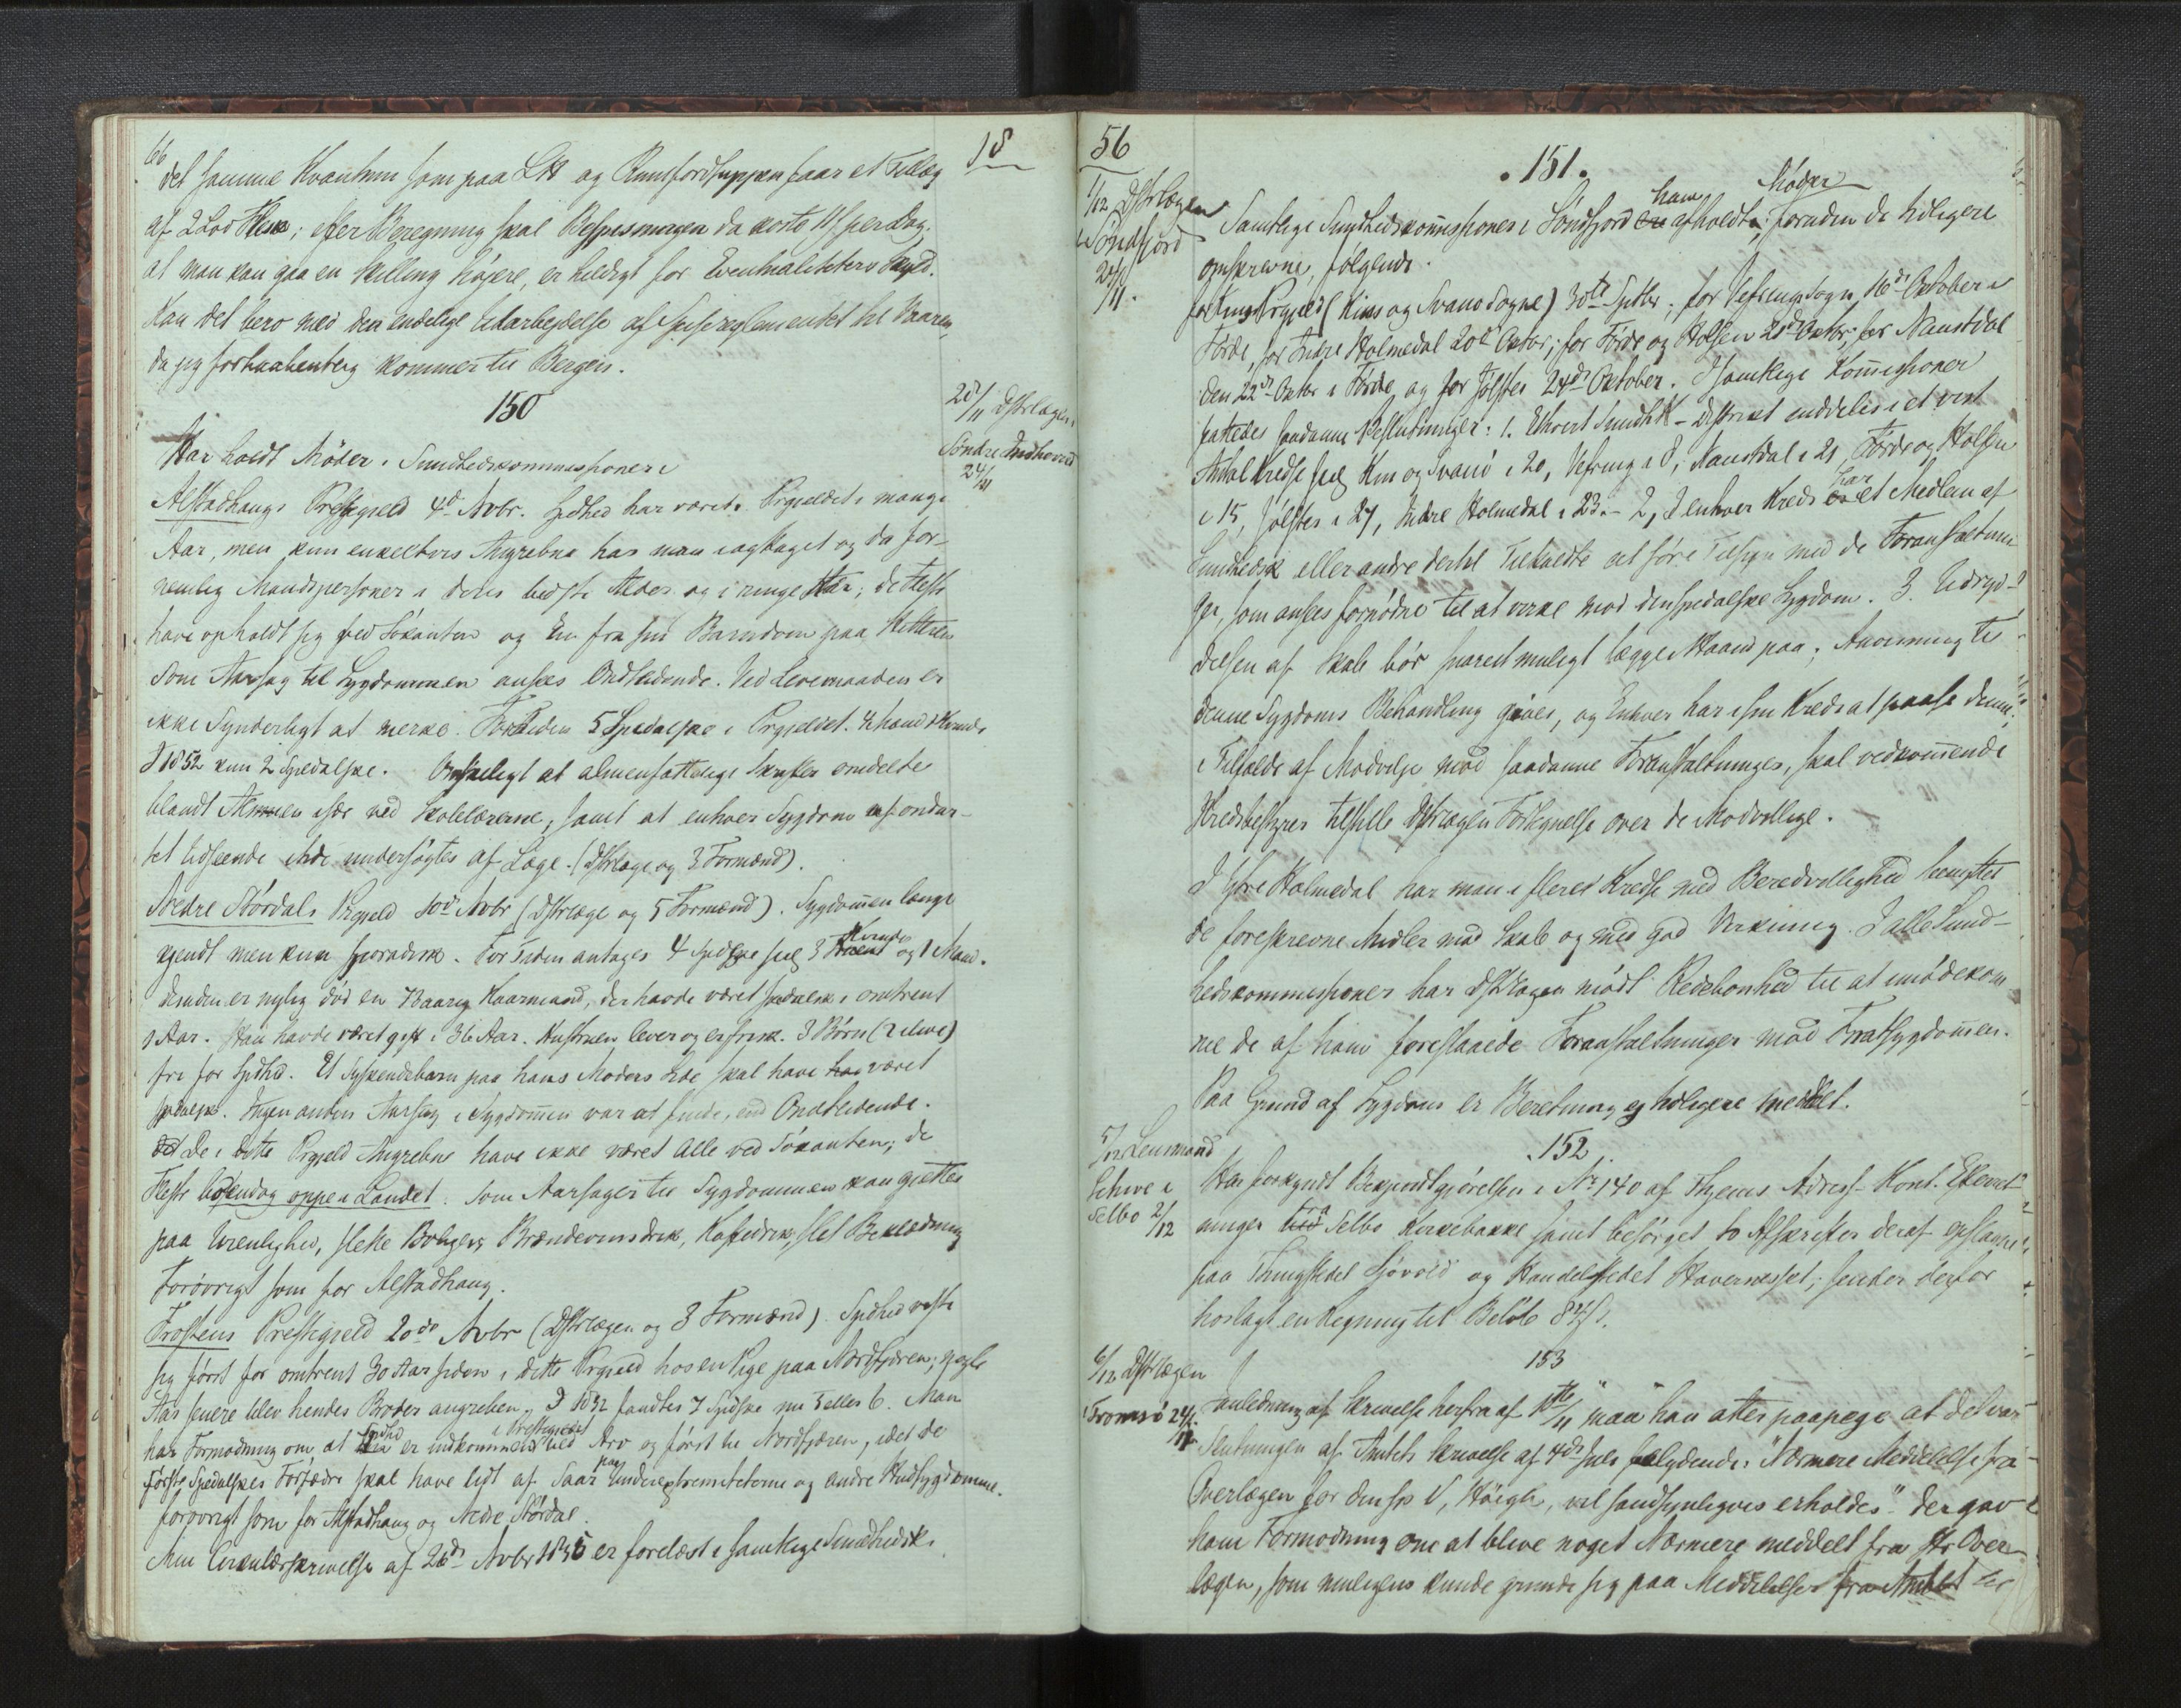 66
18
det samme Kvantum som paa LH og Rumfordsuppen faar et Tillæg
af 2 Lod Flesk; efter Beregning skal Bespisningen da koste 11 s per Dag.
at man kan gaa en Skilling højere, er heldigt for Eventualiteters Skyld.
Kan det bero med den endelige Udarbejdelse af Spisereglementet til Vaaren,
da jeg forhaabentlig kommer til Bergen.
150
28/11 Dstrlægen i
Søndre Indherred
24/11
Har holdt Møder i Sundhedskommissioner i
Alstadhaugs Præstegjeld 4d Novbr. Spdhed har været i Prgjeldet i mange
Aar, men kun enkeltvis Angrebne har man iagttaget og da for-
nemlig Mandspersoner i deres bedste Alder og i ringe Kår; de fleste
have opholdt sig ved Søkanten og En fra sin Barndom paa Hitteren
Som Aarsag til Sygdommen ansees Ondtlidende. Ved Levemaaden er
ikke Synderligt at merke. For Tiden 5 Spedalske i Prgjeldet. 4 Mænd 1 Kvinde
I 1852 kun 2 Spedalske. Ønskeligt at almenfattelige Skrifter omdeeltes
blandt Almuen især ved Skolelærerne, samt at enhver Sygdom af ondar-
tet Udseende itide undersøgtes af Læge. (Dstrlæge og 3 Formænd).
Nedre Størdals Prgjeld 10d Novbr (Dstrlæge og 5 Formænd). Sygdommen længe
kjendt men kun sporadisk. For Tiden antages 4 Spedske nl. 3 Kvinder og 1 Mand.
desuden er nylig død en 73aarig Kaarmand, der havde været spedalsk i omtrent
1 Aar. Han havde været gift i 36 Aar. Hustruen lever og er frisk. 3 Børn (2 ilive)
fri for Spdhed. Et Sydskendebarn paa hans Moders Side skal have været
spedalsk. Ingen anden Aarsag i Sygdommen var at finde, end Ondtlidende.
De i dette Prgjeld Angrebne have ikke været alle ved Søkanten; de
Fleste boende oppe i Landet. Som Aarsager til Sygdommen kan gjettes
paa Urenlighed, slette Boliger, Brændevinsdrik, Kaffedrik, slet Beklædning
Forøvrigt som for Alstadhaug.
Frostens Præstegjeld 20de Novbr (Dstrlægen og 8 Formænd). Spdhed viste
sig først for omtrent 30 Aar siden i dette Prgjeld hos en Pige paa Nordfjæren; nogle
Aar senere blev hendes Broder angreben. I 1852 fandtes 7 Spdske nu 5 eller 6. Man
har Formodning om at Spdhed er indkommen i Præstegjeldet ved Arv og først til Nordfjæren, idet de
første Spedalskes Forfædre skal have lidt af Saar paa Underextremiteterne og andre Hudsygdomme.
forøvrigt som for Alstadhaug og Nedre Størdal.
Min Cirkulærskrivelse af 26de Novbr 1855 er forelæst i samtlige Sundhedsk.
56
151.
1/12 Dstrlægen
i Søndfjord
28/11.
Samtlige Sundhedskommissioner i Søndfjord have afholdte Møder, foruden de tidligere
omskrevne, følgende.
for Kins Prgjeld (Kins og Svanø Sogne) 30te Septbr; for Vefrings Sogn 16de October i
Førde, for Indre Holmedal 20de Octbr; for Førde og Holsen 21de Octbr; for Naustdal
den 22de Octbr i Førde, og for Jølster 24de October. I samtlige Kommissioner
fattedes saadanne Beslutninger: 1. Ethvert SundhK-District inddeles i et vist
Antal Kredse nl. Kin og Svanø i 20, Vefring i 8, Naustdal i 21, Førde og Holsen
i 15, Jølster i 27, Indre Holmedal i 23. 2, I enhver Kreds har et Medlem af
Sundhedsk eller andre dertil Tilkaldte at føre Tilsyn med de Foranstaltnin
ger, som ansees fornødne til at virke mod den spedalske Sygdom. 3. Udryd-
delsen af Skab bør snarest muligt lægge Haand paa; Anvisning til
denne Sygdoms Behandling gives, og Enhver har i sin Kreds at paase denne;
i Tilfælde af Modvilje mod saadanne Foranstaltninger, skal vedkommende
Kredsbestyrer tilstille Dstrlægen Fortegnelse over de Modvillige.
I Ytre Holmedal har man i fleres Kredse med Beredvillighed benyttet
de foreskrevne Midler mod Skab og med god Virkning. I alle Sund-
hedskommissioner har Dstrlægen mødt Redebonhed til at imødekom
me de af ham foreslaaede Foranstaltninger mod Fnatsygdommen.
Paa Grund af Sygdom er Beretning ej tidligere meddelt.
152.
5/12 Lensmand
i
Selbo 2/12
Har forkyndt Bekjendtgjørelsen i No 140 af Thjems Adress-Kont. Efterret-
ninger fra Selbo Kirkebakke samt besørget to Afskrifter deraf opslaaet
paa Thingstedet Sjøvold og Handelstedet Havernesset; sender derfor
hoslagt en Regning til Beløb 84 s.
153
6/12 Dstrlægen
i Tromsø 24/11
I
Anledning af Skrivelse herfra af 10de/11 "maa" han atter paapege at det var
Slutningen af Amtets Skrivelse af 4de Juli saalydende: "Nærmere Meddelelse fra
Overlægen for den sp S, Höegh, vil sandsynligvis erholdes" der gav
ham Formodning om at blive noget Nærmere meddelt fra Hr Over
lægen, som muligens kunde grunde sig paa Meddelelser fra Amtet til